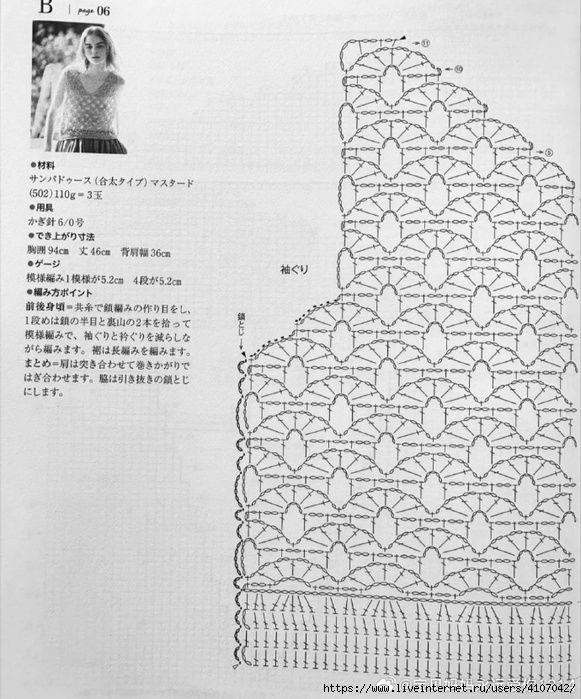 B | page 06
●材料
サンバドゥース(合太タイプ)マスタード
(502)110g=3玉
●用具
かぎ針6/0号
●でき上がり寸法
胸囲94cm 丈46cm 背肩幅36cm
●ゲージ
模様編み1模様が5.2cm 4段が5.2cm
●編み方ポイント
前後身頃=共糸で鎖編みの作り目をし、
1段めは鎖の半目と裏山の2本を拾って
模様編みで、袖ぐりと衿ぐりを減らしな
がら編みます。裾は長編みを編みます。
まとめ=肩は突き合わせて巻きかがりで
はぎ合わせます。脇は引き抜きの鎖とじ
にします。
袖ぐり
鎖とじ
→⑪
←⑩
→⑨
https://www.liveinternet.ru/users/4107042/